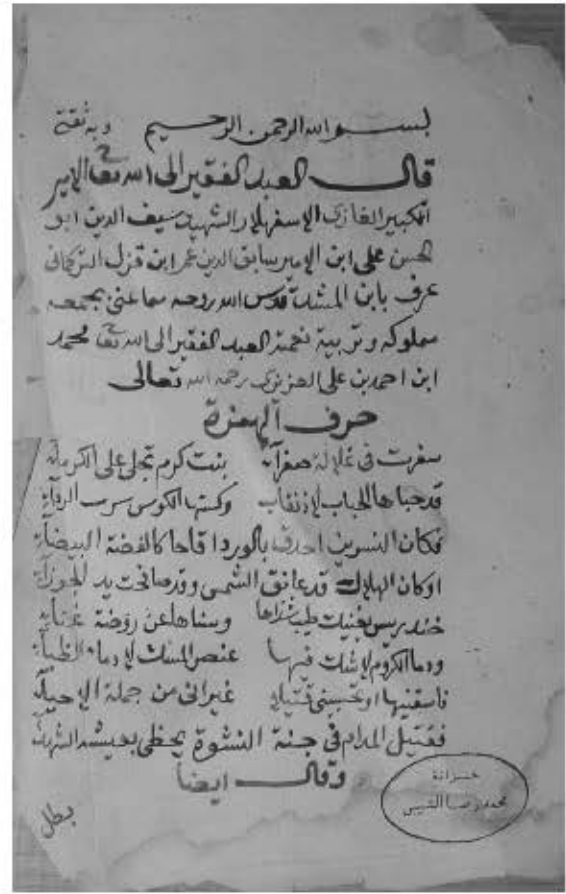 بسم الله الرحمن الرحيم وبه ثقتي
قال العبد الفقير الى الله تعا الامير
الكبير الغازي الاسفهلار الشهيد سيف الدين ابو
الحسن على ابن الامير سابق الدين عمر ابن قزل التركماني
عرف بابن المشد قدس الله روحه مما عني بجمعه
مملوكه وتربية نعمته العبد الفقير الى الله تعا محمد
ابن احمد بن على العزيزي رحمه الله تعالى
حرف الهمزة
سفرت في غلالة صفرآء بنت كرم تجلى على الكرمآء
قد حباها الحباب لا ذنقاب وكستها الكوس سرب الردآء
فكان النسرين احدق بالورد اقاحا كالفضة البيضآء
او كان الهلال قد عانق الشمس وقد صافحت يد الجوزآء
خندريس يغنيك طيب شذاها وسناها عن روضة غنآء
ودما الكروم لا شك فيها عنصر المسك لا دمآء الظبآء
فاسقنيها او تحسبني قتيلا غير اني من جملة الاحيآء
فقتيل المدام في جنة النشوة يحظى بعيشة الشهدآء
وقال ايضا
بطل
خزانة
محمد رضا الشبيبي